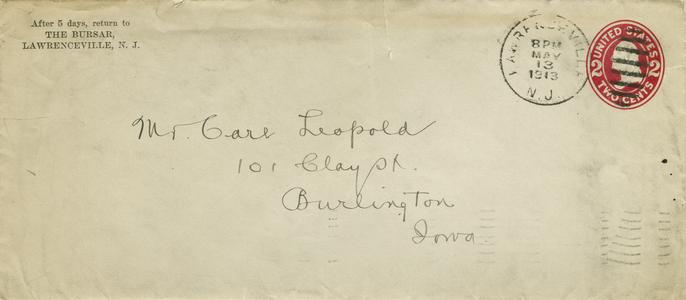 After 5 days, return to
THE BURSAR,
LAWRENCEVILLE, N. J.
LAWRENCEVILLE
8PM
MAY
13
1913
N.J.
UNITED STATES
2 2
TWO CENTS
Mr. Carl Leopold
101 Clay St.
Burlington
Iowa.